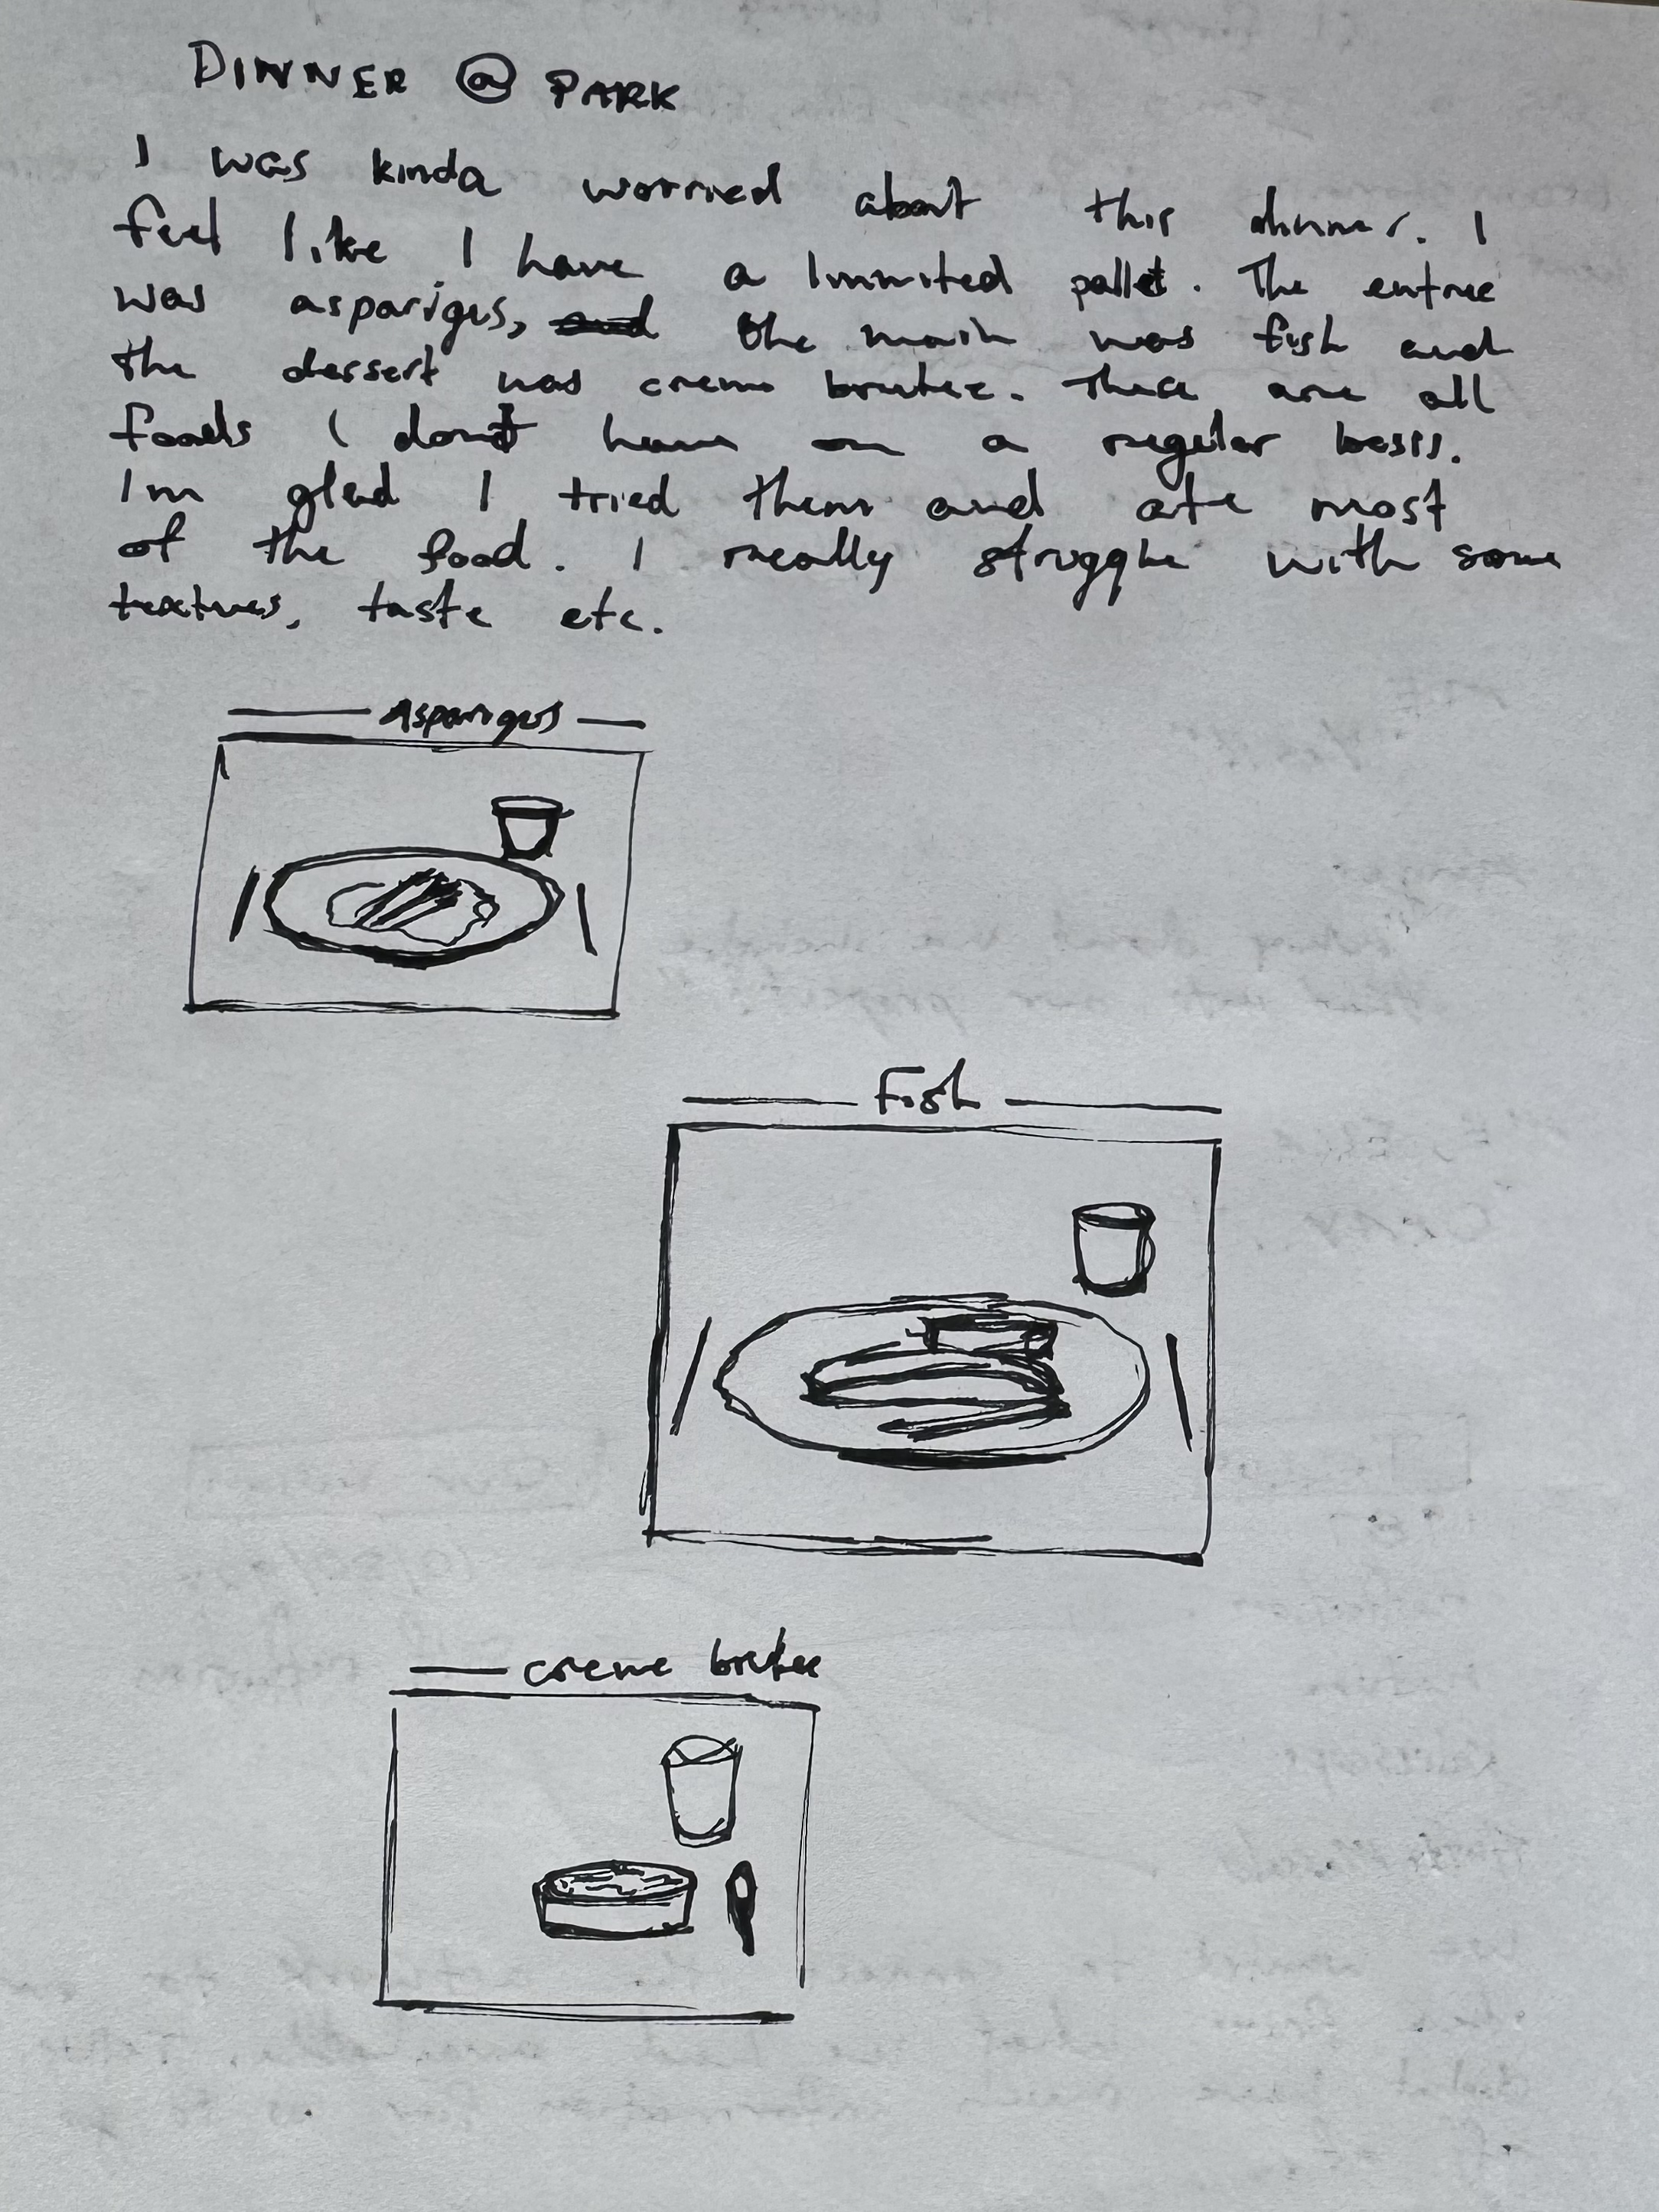 DINNER @ PARK
I was kinda worried about this dinner. I
feel like I have a limmited pallet. The entree
was asparigus, the main was fish and
the dessert was creme brulee. These are all
foods I don't have on a regular basis.
Im glad I tried them and ate most
of the food. I really struggle with some
textures, taste etc.
Asparigus
Fish
creme brulee